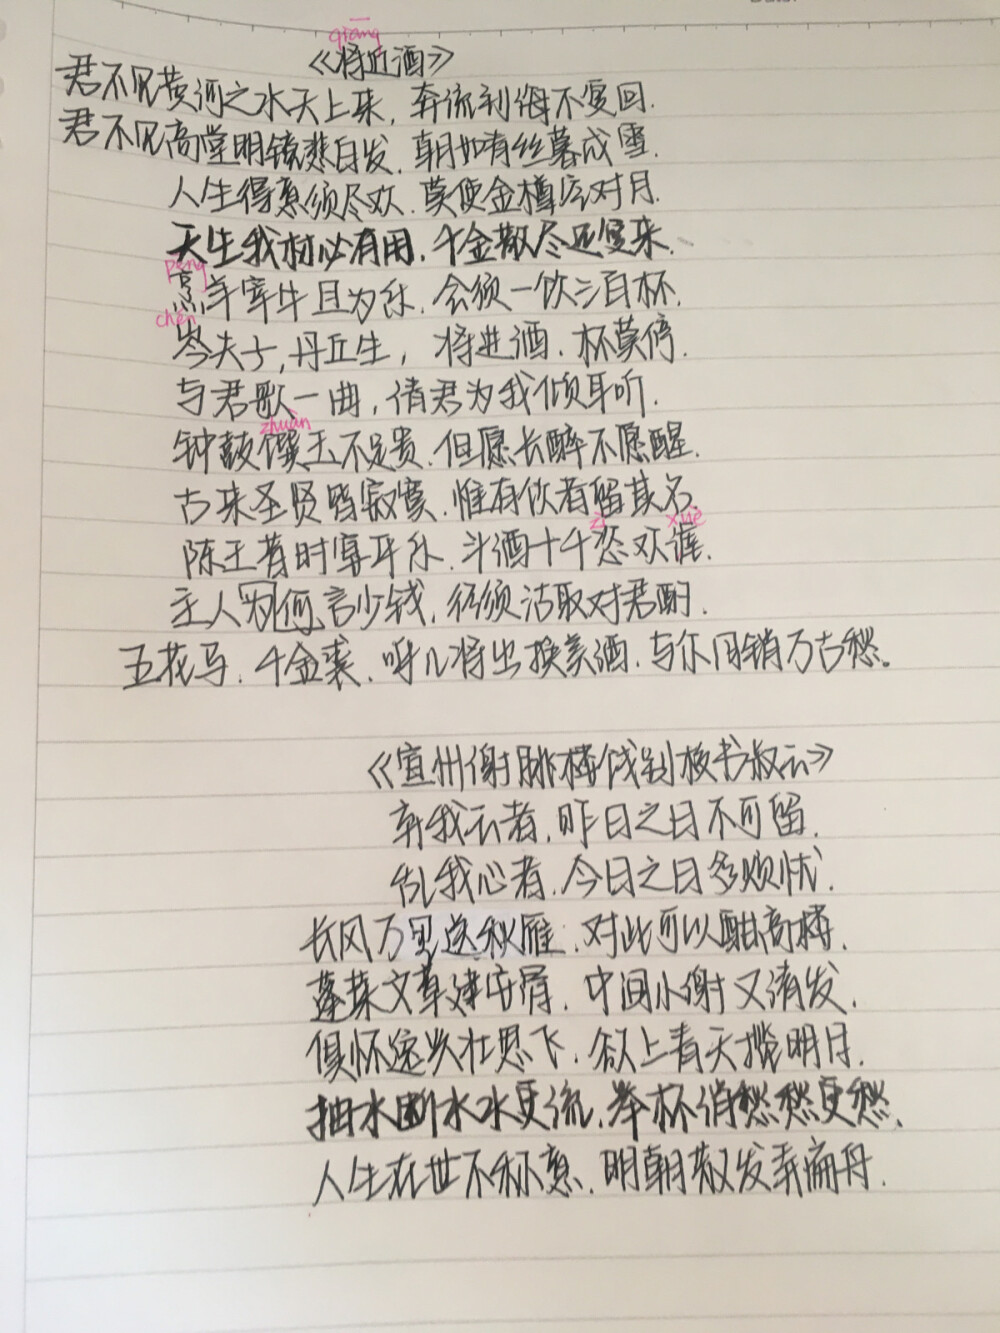 qiāng
《将近酒》
君不见黄河之水天上来，奔流到海不复回.
君不见高堂明镜悲白发.朝如青丝暮成雪.
人生得意须尽欢.莫使金樽空对月.
天生我材必有用.千金散尽还复来.
pēng
烹羊宰牛且为乐.会须一饮三百杯.
chén
岑夫子,丹丘生，将进酒.杯莫停.
与君歌一曲，请君为我倾耳听.
zhuàn
钟鼓馔玉不足贵.但愿长醉不愿醒.
古来圣贤皆寂寞.惟有饮者留其名.
zì xuè
陈王昔时宴平乐.斗酒十千恣欢谑.
主人为何言少钱，径须沽取对君酌.
五花马.千金裘.呼儿将出换美酒.与尔同销万古愁。
《宣州谢朓楼饯别校书叔云》
弃我去者.昨日之日不可留.
乱我心者.今日之日多烦忧.
长风万里送秋雁.对此可以酣高楼.
蓬莱文章建安骨.中间小谢又清发.
俱怀逸兴壮思飞.欲上青天揽明月.
抽水断水水更流.举杯消愁愁更愁.
人生在世不称意.明朝散发弄扁舟.